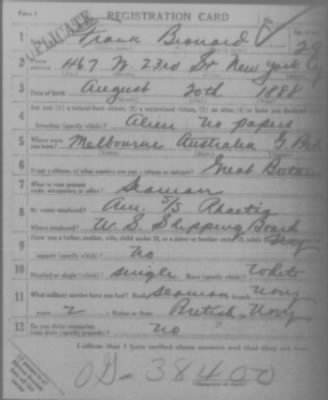 Form 1 REGISTRATION CARD No.
DUPLICATE
1 Frank 29
2 Home address 467 W. 23rd St New York City
3 Date of birth August 20th 1888
4 Are you (1) a natural-born citizen, (2) a naturalized citizen, (3) an alien, (4) or have you declared your
intention (specify which)? Alien no papers
5 Where were you born? Melbourne Australia
6 If not a citizen, of what country are you a citizen or subject? Great Britain
7 What is your present trade, occupation, or office? Seaman
8 By whom employed? Am. S/S
Where employed? U. S. Shipping Board
9 Have you a father, mother, wife, child under 12, or a sister or brother under 12, solely
support (specify which)? No
10 Married or single (which)? single Race (specify which)? White
11 What military service have you had? Rank seaman branch Navy
years 2 Nation or State British Navy
12 Do you claim exemption from draft (specify grounds)? No
I affirm that I have verified above answers and that they are true.
38400